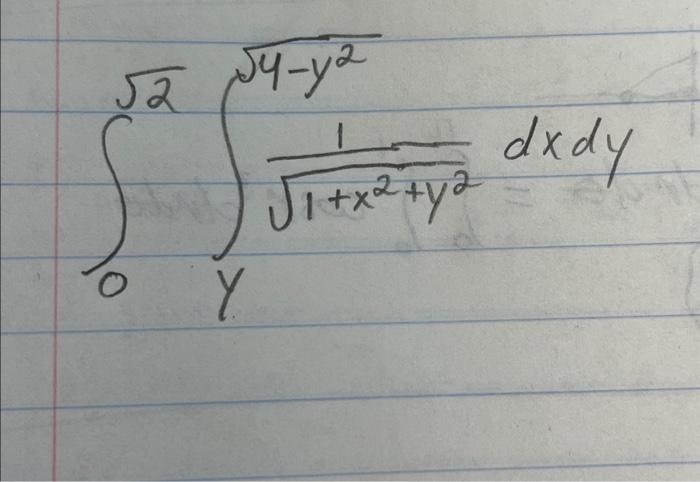 ∫₀^√2 ∫_y^√(4-y²) 1/√(1+x²+y²) dx dy